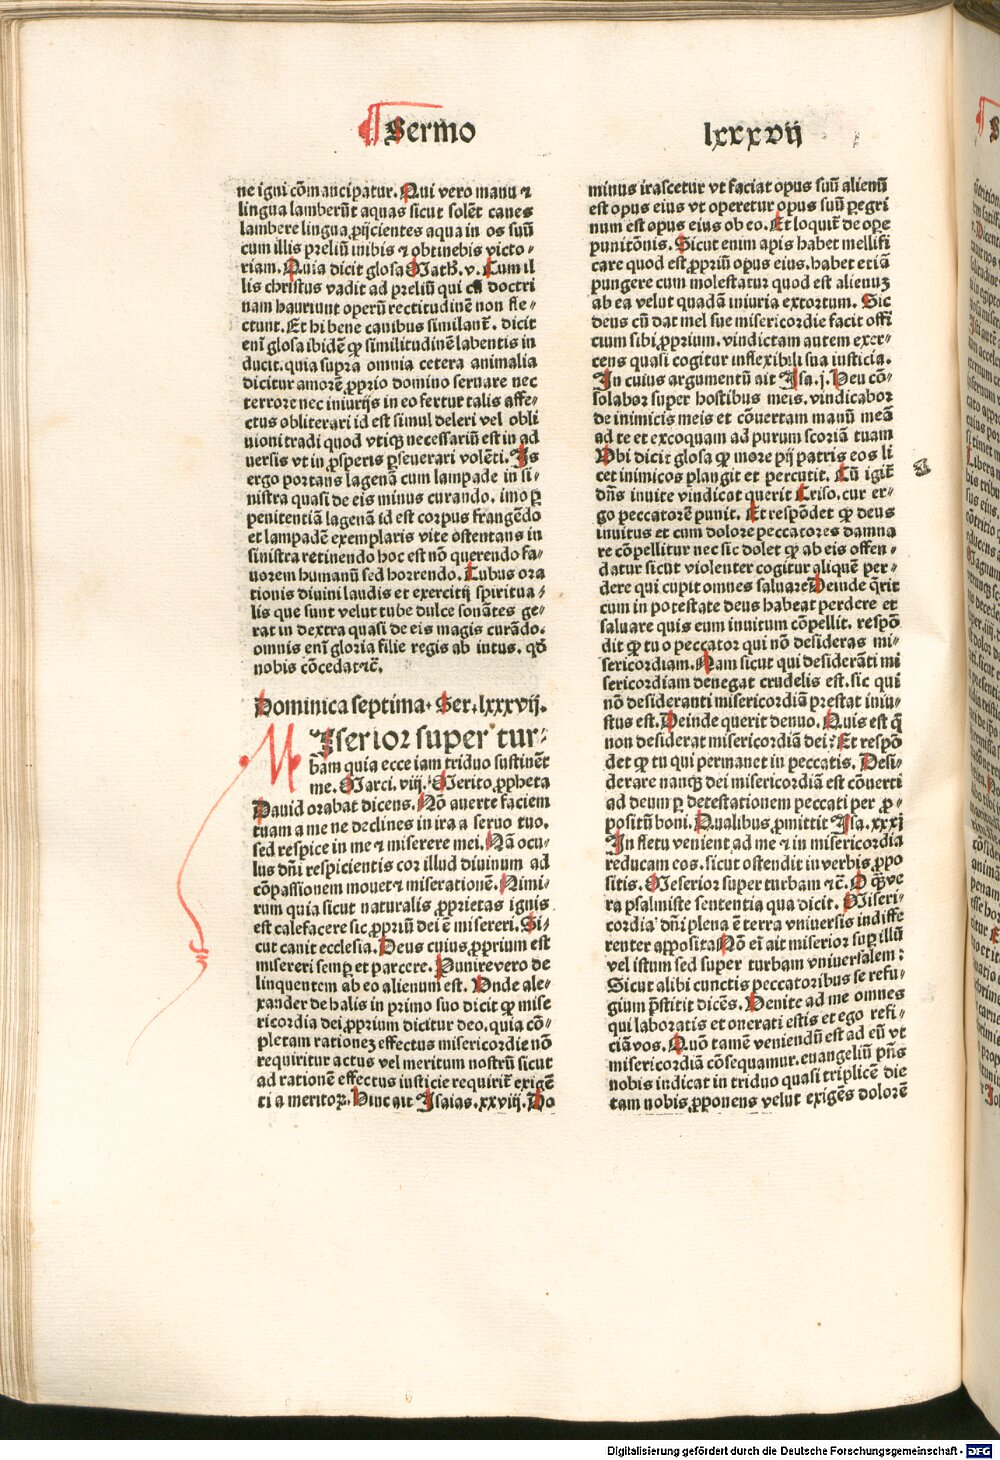 Sermo lxxxvij
ne igni cōmancipatur. Qui vero manu ⁊
lingua lamberūt aquas sicut solēt canes
lambere lingua ꝓijcientes aqua in os suū
cum illis preliū inibis ⁊ obtinebis victo⸗
riam. Quia dicit glosa Math. v. Cum il
lis christus vadit ad preliū qui cū doctri
nam hauriunt operū rectitudinē non fle⸗
ctunt. Et hi bene canibus similant᷑. dicit
em̄ glosa ibidē ꝙ similitudinē labentis in
ducit. quia supra omnia cetera animalia
dicitur amorē ꝓprio domino seruare nec
terrore nec iniurijs in eo fertur talis affe⸗
ctus obliterari id est simul deleri vel obli
uioni tradi quod vtiqꝫ necessariū est in ad
uersis vt in ꝓsperis ꝑseuerari volēti. Is
ergo portans lagenā cum lampade in si⸗
nistra quasi de eis minus curando. imo ꝑ
penitentiā lagenā id est corpus frangēdo
et lampadē exemplaris vite ostentans in
sinistra retinendo hoc est nō querendo fa⸗
uorem humanū sed horrendo. Tubus ora
tionis diuini laudis et exercitij spiritua⸗
lis que sunt velut tube dulce sonātes ge⸗
rat in dextra quasi de eis magis curādo.
omnis eni gloria filie regis ab intus. qd̄
nobis cōcedat ⁊c̄.
Dominica septima. Ser. lxxxvij.
MIserior super tur⸗
bam quia ecce iam triduo sustinēt
me. Marci. viij. Merito ꝓpheta
Dauid orabat dicens. Nō auerte faciem
tuam a me ne declines in ira a seruo tuo.
sed respice in me ⁊ miserere mei. Nā ocu⸗
lus dn̄i respicientis cor illud diuinum ad
cōpassionem mouet ⁊ miserationē. Nimi⸗
rum quia sicut naturalis ꝓprietas ignis
est calefacere sic ꝓpriū dei ē misereri. Si⸗
cut canit ecclesia. Deus cuius ꝓprium est
misereri semꝑ et parcere. Punire vero de
linquentem ab eo alienum est. Vnde ale⸗
xander de halis in primo suo dicit ꝙ mise
ricordia dei ꝓprium dicitur deo. quia cō⸗
pletam rationeꝫ effectus misericordie nō
requiritur actus vel meritum nostrū sicut
ad rationē effectus iusticie requirit᷑ exigē
ti a meritoꝝ. Hinc ait Isaias. xxviij. Do
minus irascetur vt faciat opus suū alienū
est opus eius vt operetur opus suū ꝑegri
num est opus eius ob eo. Et loquit᷑ de oꝑe
punitōnis. Sicut enim apis habet mellifi
care quod est ꝓpriū opus eius. habet etiā
pungere cum molestatur quod est alienuꝫ
ab ea velut quadā iniuria extortum. Sic
deus cū dat mel sue misericordie facit offi
cium sibi ꝓprium. vindictam autem exer⸗
cens quasi cogitur inflexibili sua iusticia.
In cuius argumentū ait Isa. j. Heu cō⸗
solabor super hostibus meis. vindicabor
de inimicis meis et cōuertam manū meā
ad te et excoquam ad purum scoriā tuam
Vbi dicit glosa ꝙ more pij patris eos li
cet inimicos plangit et percutit. Cū igit᷑
dn̄s inuite vindicat querit Criso. cur er⸗
go peccatorē punit. Et respōdet ꝙ deus
inuitus et cum dolore peccatores damna
re cōpellitur nec sic dolet ꝙ ab eis offen⸗
datur sicut violenter cogitur aliquē per⸗
dere qui cupit omnes saluare. Deinde q̄rit
cum in potestate deus habeat perdere et
saluare quis eum inuitum cōpellit. respō
dit ꝙ tu o peccator qui nō desideras mi⸗
sericordiam. Nam sicut qui desiderāti mi
sericordiam denegat crudelis est. sic qui
nō desideranti misericordiā prestat iniu⸗
stus est. Deinde querit denuo. Quis est q̄
non desiderat misericordiā dei? Et respō
det ꝙ tu qui permanet in peccatis. Desi⸗
derare nanqꝫ dei misericordiā est cōuerti
ad deum ꝑ detestationem peccati per ꝓ⸗
positū boni. Qualibus ꝓmittit Isa. xxxj
In fletu venient ad me ⁊ in misericordia
reducam eos. sicut ostendit in verbis ꝓpo
sitis. Meserior super turbam ⁊c̄. O q̄ ve
ra psalmiste sententia qua dicit. Miseri⸗
cordia dn̄i plena ē terra vniuersis indiffe
renter apposita. Nō ei ait miserior suꝑ illū
vel istum sed super turbam vniuersalem:
Sicut alibi cunctis peccatoribus se refu⸗
gium p̄stitit dicēs. Venite ad me omnes
qui laboratis et onerati estis et ego refi⸗
ciā vos. Quō tamē veniendū est ad eū vt
misericordiā cōsequamur. euangeliū p̄ns
nobis indicat in triduo quasi triplicē die
tam nobis ꝓponens velut exigēs dolorē
Digitalisierung gefördert durch die Deutsche Forschungsgemeinschaft - DFG